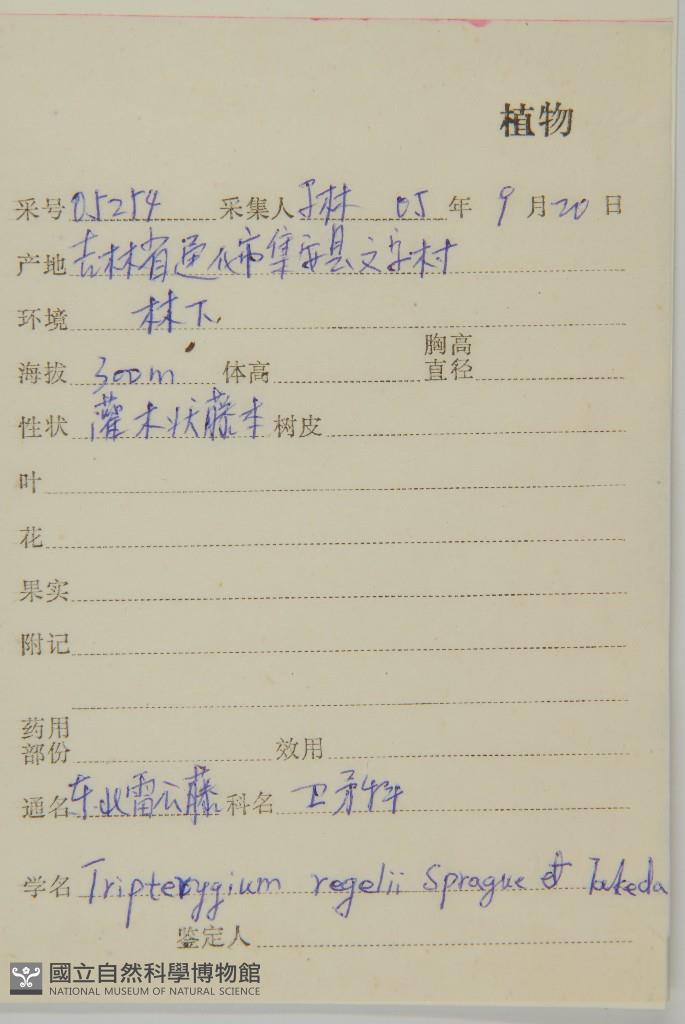 植物
采号 05254 采集人 于林 05 年 9 月 20 日
产地 吉林省通化市集安县文字村
环境 林下
海拔 300m 体高 胸高直径
性状 灌木状藤本 树皮
叶
花
果实
附记
药用部份 效用
通名 东北雷公藤 科名 卫矛
学名 Tripterygium regelii Sprague et Takeda
鉴定人
國立自然科學博物館
NATIONAL MUSEUM OF NATURAL SCIENCE